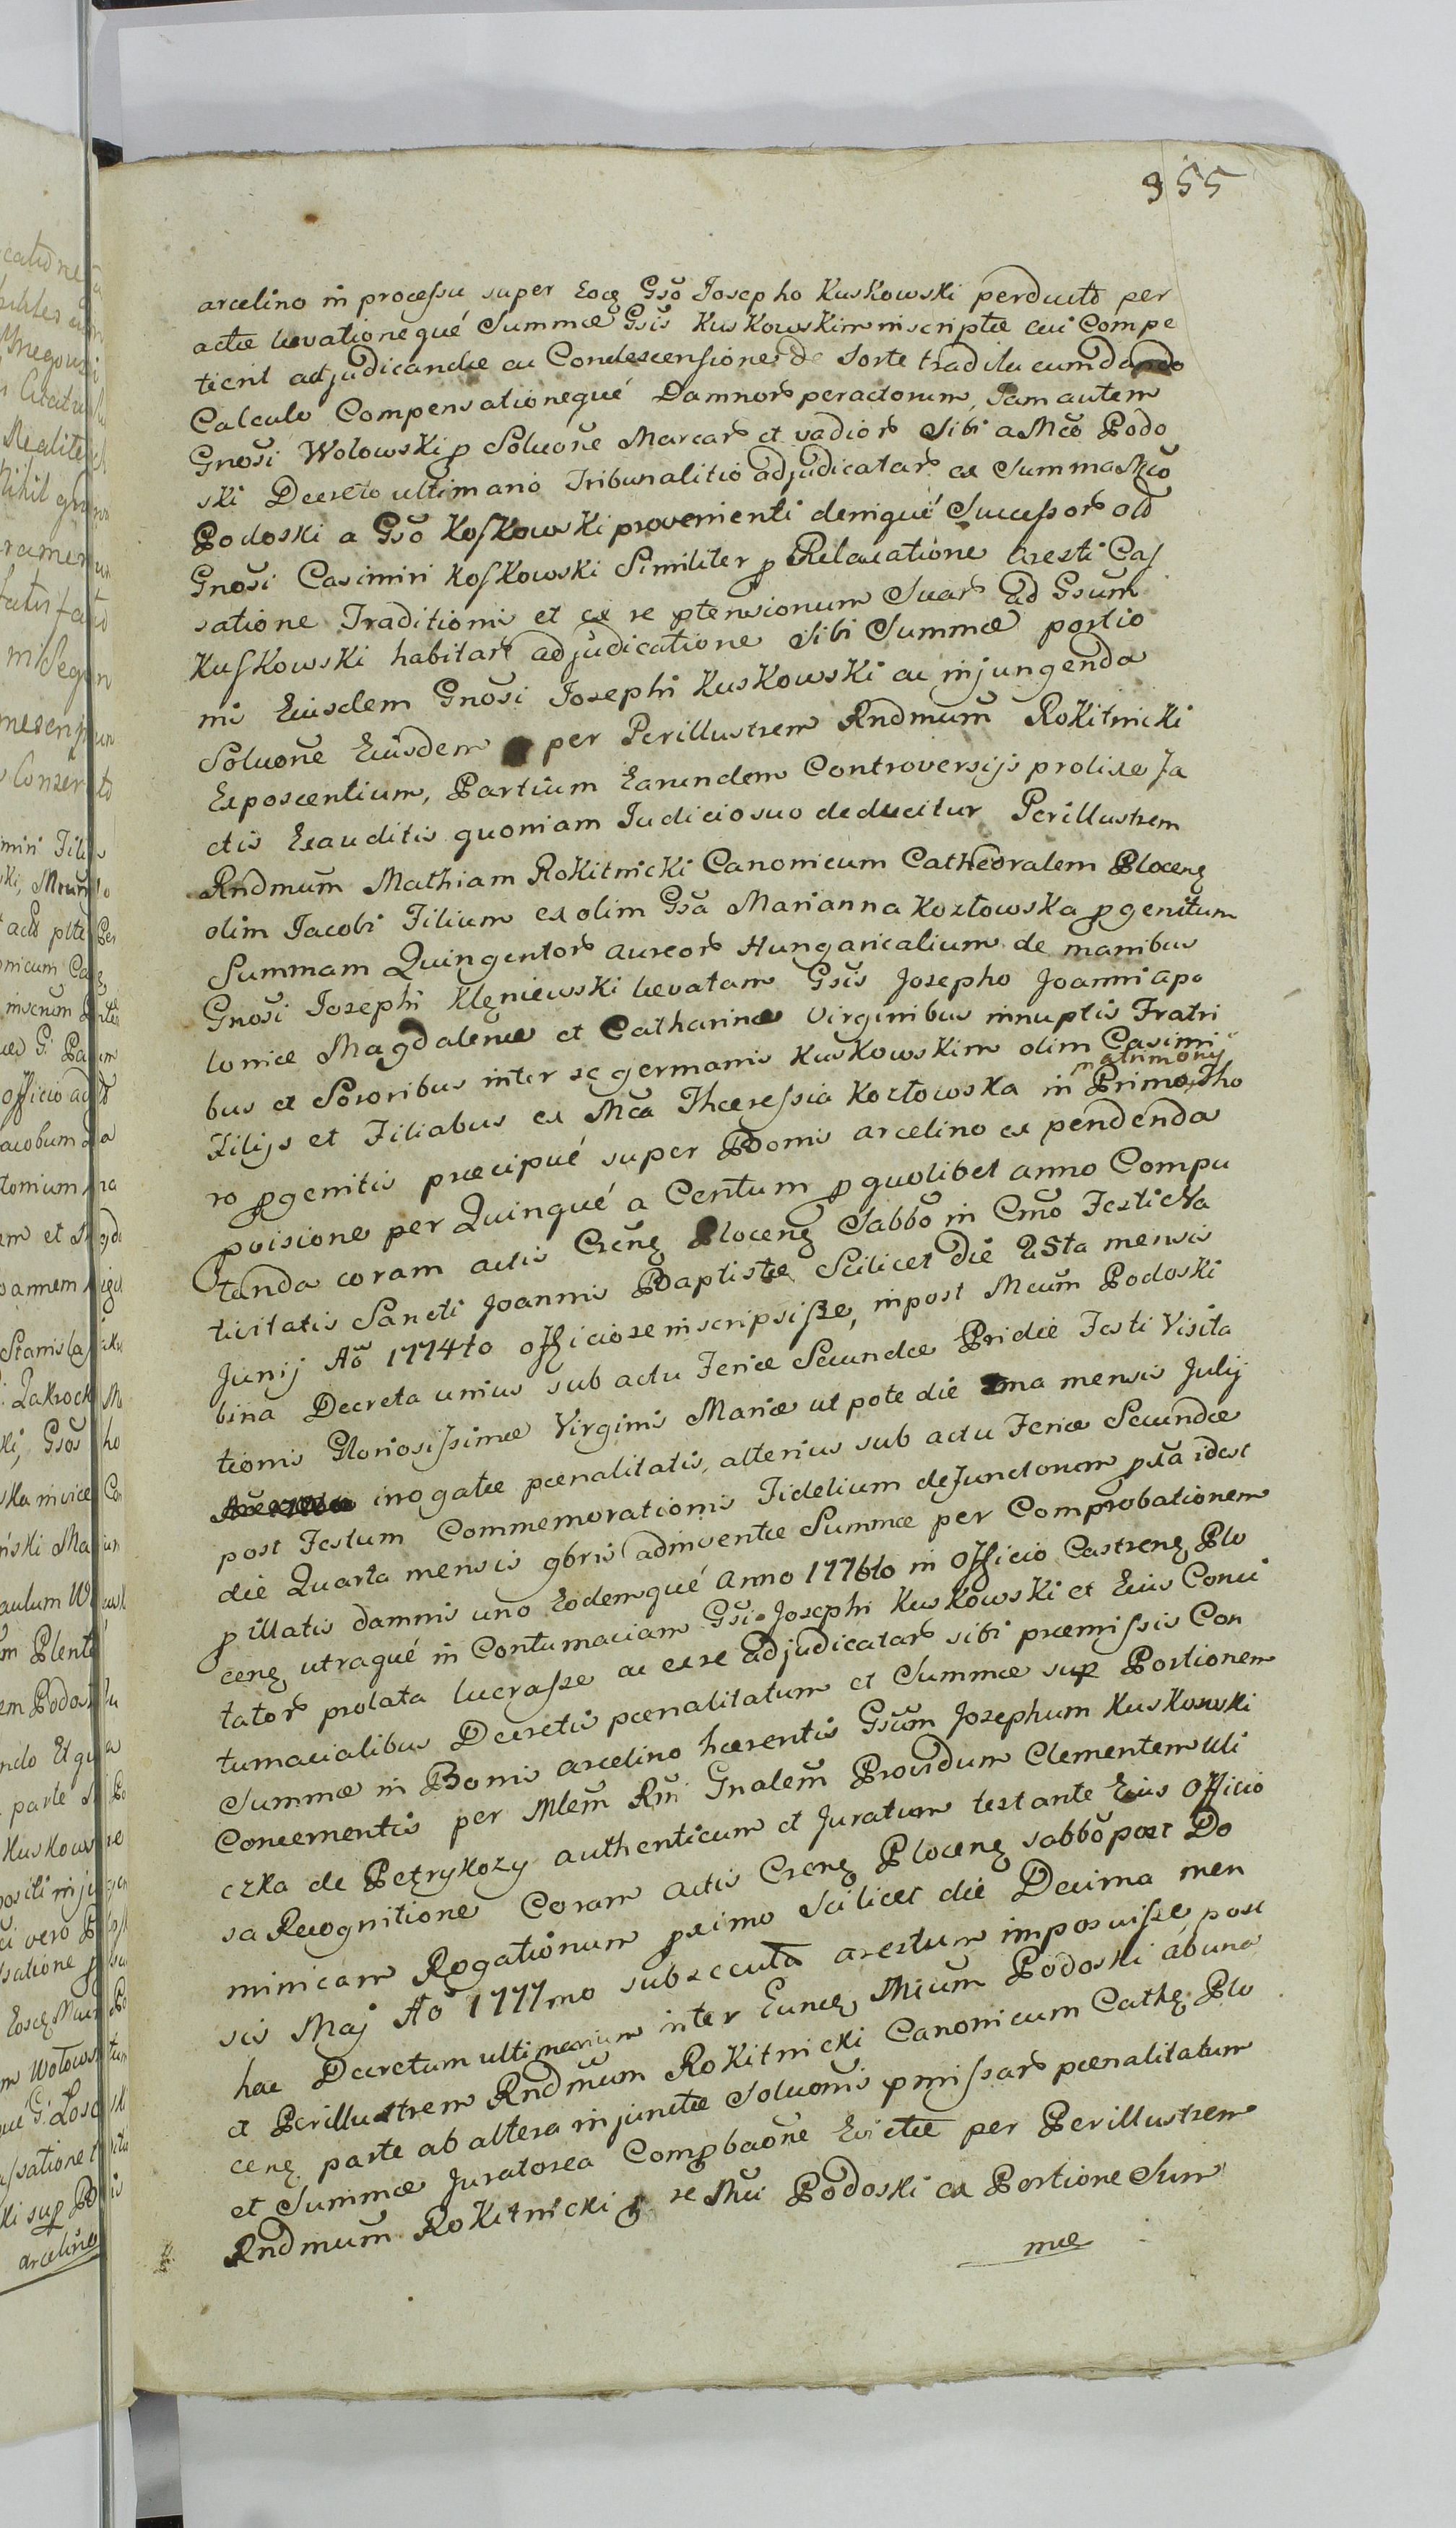 355
arcelino in processu super Eoq Gsõ Josepho Kuskowski perducto per
actæ levationequé Summæ Gsis Kuskowskim inscriptæ cui Compe
tient adjudicandæ ac Condescensione de sorte tradita eum dando
Calculo Compensationequé Damnor peractorum, Jam autem
Gnosi Wolowski p Soluone Marcar et vadior Sibi a Mco Podo
ski Decreto ultimario Tribunalitio adjudicatar ex Summa Mco
Podoski a Gsõ Koskowski provenienti deniqué Successor old
Gnosi Casimiri Koskowski Similiter p Relaxatione Aresti Cas
satione Traditionis et ex re ptensionum Suar ad Gsum
Kuskowski habitar adjudicatione Sibi Summæ portio
nis Eiusdem Gnosi Josephi Kuskowski ac injungenda
Soluone Eiusdem per Perillustrem Rndmum Rokitnicki
Exposcentium, Partium Earundem Controversijs prolixe Ja
ctis Exauditis quoniam Judicio suo deducitur Perillustrem
Rndmum Mathiam Rokitnicki Canonicum Cathedralem Plocenę
olim Jacobi Filium ex olim Gsa Marianna Kozłowska pgenitum
Summam Quingentor aureor Hungaricalium de manibus
Gnosi Josephi Klęniewski levatam Gsis Josepho Joanni apo
loniæ Magdalenæ et Catharinæ Virginibus innuptis Fratri
bus et Sororibus inter se germanis Kuskowskim olim Casimi
Filijs et Filiabus ex Mca Thæressia Kozłowska in Primo matrimony Tho
ro pgenitis præcipué super Bonis arcelino ex pendenda
pvisione per Quinqué a Centum p quolibet anno Compu
tanda coram actis Crenę Plocenę Sabbo in Cmo Festi Na
tivitatis Sancti Joannis Baptistæ Scilicet die 25ta mensis
Junij Aõ 1774to officiose inscripsisse, inpost Mcum Podoski
bina Decreta unius sub actu Feriæ Secundæ Pridie Festi Visita
tionis Gloriosissimæ Virginis Mariæ ut pote die 1ma mensis Julij
irrogatæ pœnalitatis, alterius sub actu Feriæ Secundæ
post Festum Commemorationis Fidelium defunctorum pxa idest
die Quarta mensis 9bris adinventæ Summæ per Comprobationem
p illatis damnis uno Eodemqué Anno 1776to in Officio Castrenę Plo
cenę utraqué in Contumaciam Gsi Josephi Kuskowski et Eius Conci
tator prolata lucrasse ac ex re adjudicatar sibi præmissis Con
tumacialibus Decretis pœnalitatum et Summæ sup Portionem
Summæ in Bonis arcelino hærentis Gsum Josephum Kuskowski
Concernentis per Mlem Rni Gnalem Providum Clementem Uli
czka de Petrykozy authenticum et Juratum testante Eius Officio
sa Recognitione Coram actis Crenę Plocenę sabbo post Do
minicam Rogationum pximo Scilicet die Decima men
sis Maj Aõ 1777mo subsecuta arestum imposuisse, post
hac Decretum ultimarium inter Eunq Mcum Podoski ab una
et Perillustrem Rndmum Rokitnicki Canonicum Cathę Plo
cenę parte ab altera injunctæ Soluonis pmissar pœnalitatum
et Summæ Juratorea Compbaone Evictæ per Perillustrem
Rndmum Rokitnicki p re Mci Podoski ex Portione Sum
mæ